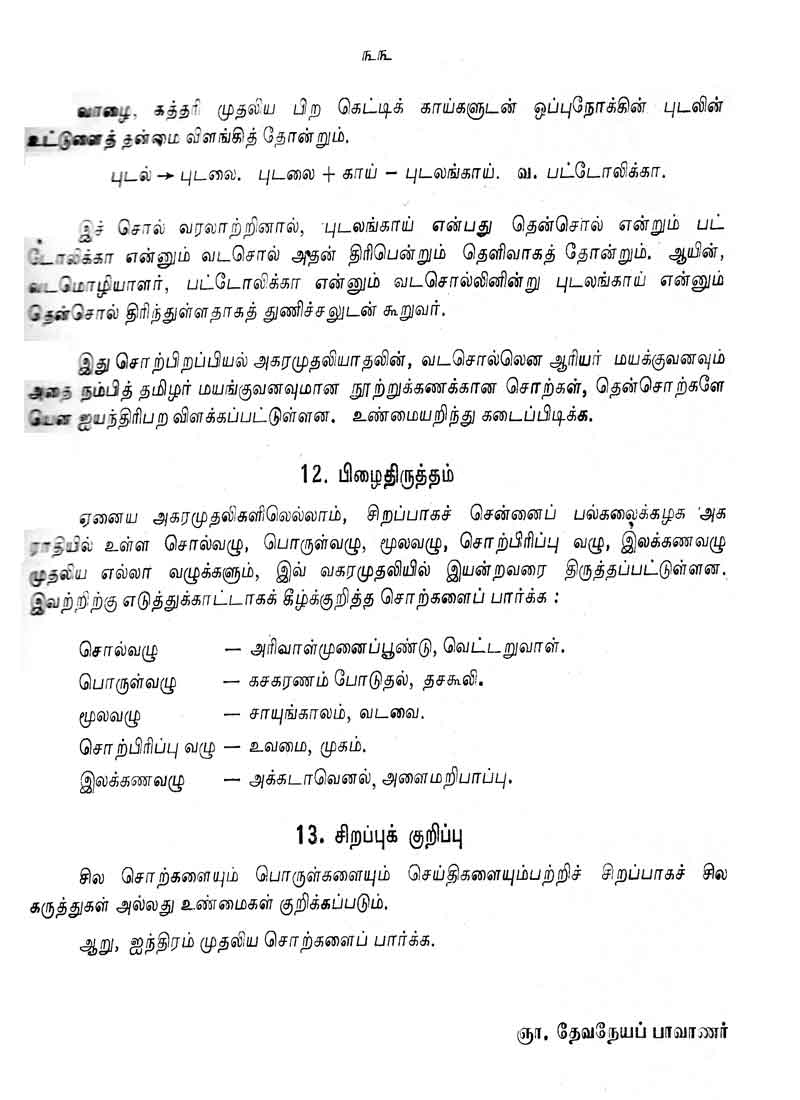 ௩௩
வாழை, கத்தரி முதலிய பிற கெட்டிக் காய்களுடன் ஒப்புநோக்கின் புடலின்
உட்டுளைத் தன்மை விளங்கித் தோன்றும்.
புடல் → புடலை. புடலை + காய் – புடலங்காய். வ. பட்டோலிக்கா.
இச் சொல் வரலாற்றினால், புடலங்காய் என்பது தென்சொல் என்றும் பட்
டோலிக்கா என்னும் வடசொல் அதன் திரிபென்றும் தெளிவாகத் தோன்றும். ஆயின்,
வடமொழியாளர், பட்டோலிக்கா என்னும் வடசொல்லினின்று புடலங்காய் என்னும்
தென்சொல் திரிந்துள்ளதாகத் துணிச்சலுடன் கூறுவர்.
இது சொற்பிறப்பியல் அகரமுதலியாதலின், வடசொல்லென ஆரியர் மயக்குவனவும்
அதை நம்பித் தமிழர் மயங்குவனவுமான நூற்றுக்கணக்கான சொற்கள், தென்சொற்களே
யென ஐயந்திரிபற விளக்கப்பட்டுள்ளன. உண்மையறிந்து கடைப்பிடிக்க.
12. பிழைதிருத்தம்
ஏனைய அகரமுதலிகளிலெல்லாம், சிறப்பாகச் சென்னைப் பல்கலைக்கழக அக
ராதியில் உள்ள சொல்வழு, பொருள்வழு, மூலவழு, சொற்பிரிப்பு வழு, இலக்கணவழு
முதலிய எல்லா வழுக்களும், இவ் வகரமுதலியில் இயன்றவரை திருத்தப்பட்டுள்ளன.
இவற்றிற்கு எடுத்துக்காட்டாகக் கீழ்க்குறித்த சொற்களைப் பார்க்க :
சொல்வழு — அரிவாள்முனைப்பூண்டு, வெட்டறுவாள்.
பொருள்வழு — கசகரணம் போடுதல், தசகூலி.
மூலவழு — சாயுங்காலம், வடவை.
சொற்பிரிப்பு வழு — உவமை, முகம்.
இலக்கணவழு — அக்கடாவெனல், அளைமறிபாப்பு.
13. சிறப்புக் குறிப்பு
சில சொற்களையும் பொருள்களையும் செய்திகளையும்பற்றிச் சிறப்பாகச் சில
கருத்துகள் அல்லது உண்மைகள் குறிக்கப்படும்.
ஆறு, ஐந்திரம் முதலிய சொற்களைப் பார்க்க.
ஞா. தேவநேயப் பாவாணர்